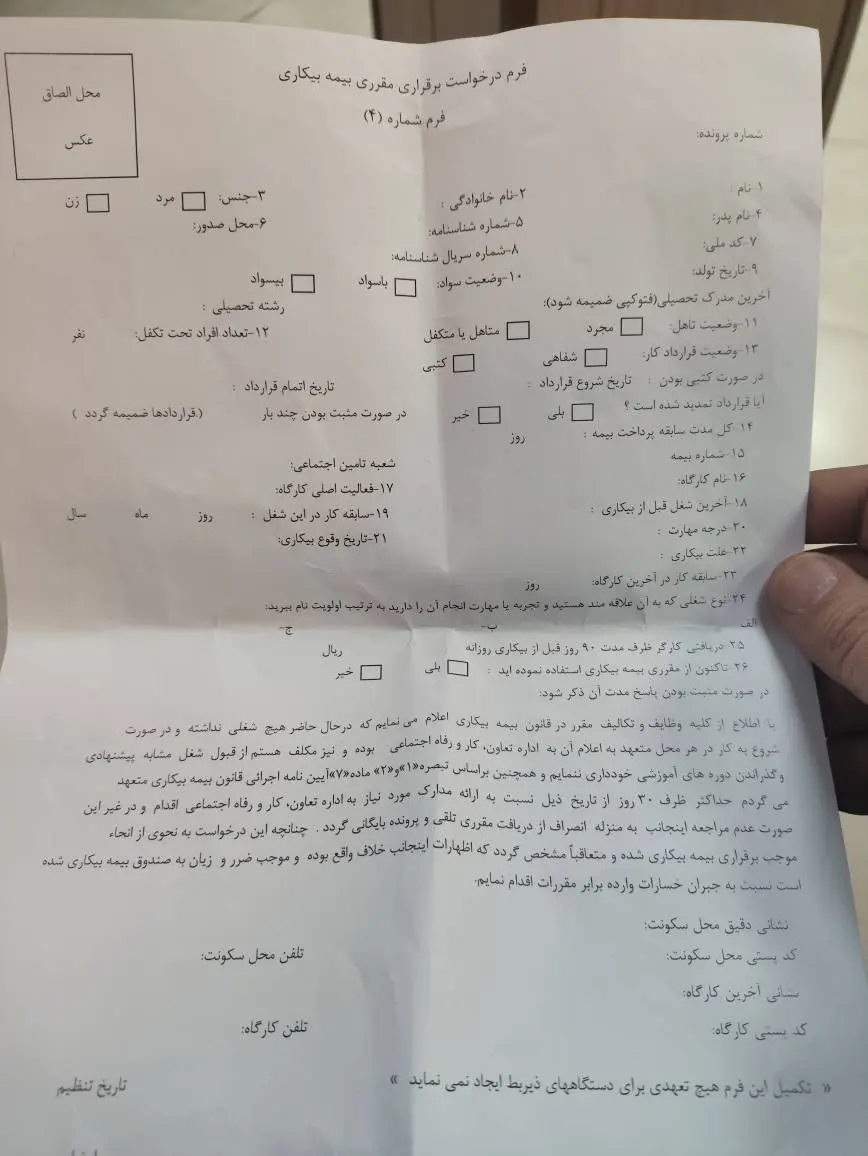 محل الصاق
عکس
فرم درخواست برقراری مقرری بیمه بیکاری
فرم شماره (۴)
شماره پرونده:
۱-نام: ۲-نام خانوادگی : ۳-جنس: مرد زن
۴-نام پدر: ۵-شماره شناسنامه: ۶-محل صدور:
۷-کد ملی: ۸-شماره سریال شناسنامه:
۹-تاریخ تولد: ۱۰-وضعیت سواد: باسواد بیسواد
آخرین مدرک تحصیلی(فتوکپی ضمیمه شود): رشته تحصیلی :
۱۱-وضعیت تاهل: مجرد متاهل یا متکفل ۱۲-تعداد افراد تحت تکفل: نفر
۱۳-وضعیت قرارداد کار: شفاهی کتبی
در صورت کتبی بودن : تاریخ شروع قرارداد : تاریخ اتمام قرارداد :
آیا قرارداد تمدید شده است ؟ بلی خیر در صورت مثبت بودن چند بار (.قراردادها ضمیمه گردد )
۱۴-کل مدت سابقه پرداخت بیمه : روز
۱۵-شماره بیمه شعبه تامین اجتماعی:
۱۶-نام کارگاه: ۱۷-فعالیت اصلی کارگاه:
۱۸-آخرین شغل قبل از بیکاری : ۱۹-سابقه کار در این شغل : روز ماه سال
۲۰-درجه مهارت : ۲۱-تاریخ وقوع بیکاری:
۲۲-علت بیکاری :
۲۳-سابقه کار در آخرین کارگاه: روز
۲۴-نوع شغلی که به آن علاقه مند هستید و تجربه یا مهارت انجام آن را دارید به ترتیب اولویت نام ببرید:
الف ب- ج-
۲۵-دریافتی کارگر ظرف مدت ۹۰ روز قبل از بیکاری روزانه ریال
۲۶-تاکنون از مقرری بیمه بیکاری استفاده نموده اید : بلی خیر
در صورت مثبت بودن پاسخ مدت آن ذکر شود:
با اطلاع از کلیه وظایف و تکالیف مقرر در قانون بیمه بیکاری اعلام می نمایم که درحال حاضر هیچ شغلی نداشته و در صورت
شروع به کار در هر محل متعهد به اعلام آن به اداره تعاون، کار و رفاه اجتماعی بوده و نیز مکلف هستم از قبول شغل مشابه پیشنهادی
و گذراندن دوره های آموزشی خودداری ننمایم و همچنین براساس تبصره«۱»و«۲» ماده«۷»آیین نامه اجرائی قانون بیمه بیکاری متعهد
می گردم حداکثر ظرف ۳۰ روز از تاریخ ذیل نسبت به ارائه مدارک مورد نیاز به اداره تعاون، کار و رفاه اجتماعی اقدام و در غیر این
صورت عدم مراجعه اینجانب به منزله انصراف از دریافت مقرری تلقی و پرونده بایگانی گردد . چنانچه این درخواست به نحوی از انحاء
موجب برقراری بیمه بیکاری شده و متعاقباً مشخص گردد که اظهارات اینجانب خلاف واقع بوده و موجب ضرر و زیان به صندوق بیمه بیکاری شده
است نسبت به جبران خسارات وارده برابر مقررات اقدام نمایم.
نشانی دقیق محل سکونت:
کد پستی محل سکونت: تلفن محل سکونت:
نشانی آخرین کارگاه:
کد پستی کارگاه: تلفن کارگاه:
« تکمیل این فرم هیچ تعهدی برای دستگاههای ذیربط ایجاد نمی نماید » تاریخ تنظیم